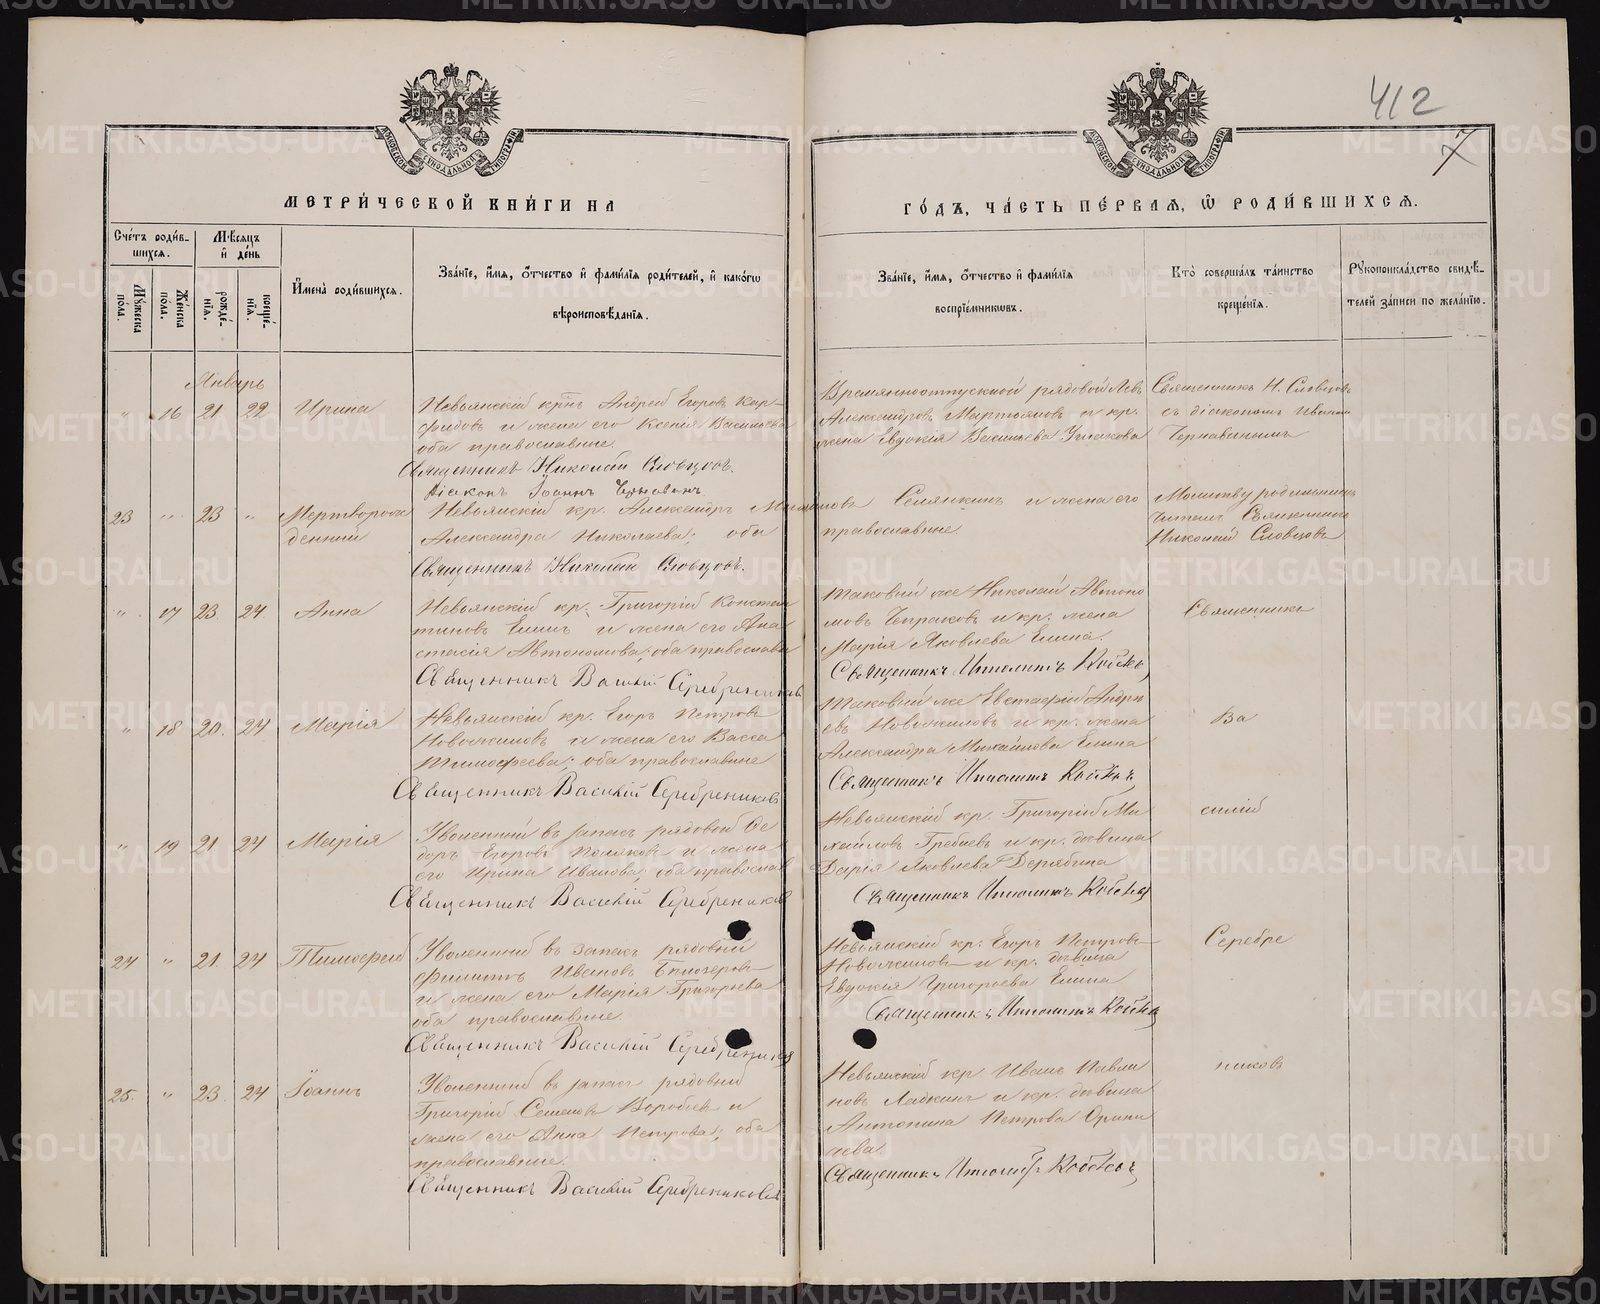 412
7
МЕТРИ́ЧЕСКОЙ КНИ́ГИ НА
ГО́ДЪ, ЧА́СТЬ ПЕ́РВАЯ, Ѡ РОДИ́ВШИХСЯ.
Сче́тъ роди́в-
шихся.
Му́жеска
пола.
Же́нска
пола.
Мѣ́сяцъ
и҆ де́нь
рожде́-
нїѧ.
креще́-
нїѧ.
И҆мена̀ роди́вшихся.
Зва́нїе, и҆́мя, ѻ҆́тчество и҆ фами́лїя роди́телей, и҆ како́гѡ
вѣроисповѣ́данїя.
Зва́нїе, и҆́мя, ѻ҆́тчество и҆ фами́лїя
воспрїе́мниковъ.
Кто̀ соверша́лъ та́инство
креще́нїя.
Рꙋкоприкла́дство свидѣ́-
телей за́писи по жела́нїю.
Январь
" 16 21 22 Ирина
Невьянскій крнъ Андрей Егоровъ Кар-
фидовъ и жена его Ксенія Васильева
оба православные.
Священникъ Николай Словцовъ.
Діаконъ Іоаннъ Чернавинъ
Временноотпускной рядовой Левъ
Александровъ Мартюшовъ и кр.
жена Евдокія Васильева Ушакова
Священникъ Н. Словцовъ
съ діакономъ Иваномъ
Чернавинымъ
23 " 23 " Мертворож
денный
Невьянскій кр. Александръ
Александра Николаева; оба
Священникъ Николай Словцовъ.
Селянкинъ и жена его
православные.
Молитву родильницѣ
читалъ Священникъ
Николай Словцовъ
" 17 23 24 Анна
Невьянскій кр. Григорій Констан
тиновъ Елинъ и жена его Ана
стасія Автономова; оба православн
Священникъ Василій Серебрениковъ
Таковый же Николай Автоно
мовъ Чепраковъ и кр. жена
Марія Яковлева Елина.
Священникъ Ипполитъ Койсъ
Священникъ
" 18 20. 24 Марія
Невьянскій кр. Егоръ Петровъ
Новожиловъ и жена его Васса
Тимофеева; оба православные
Священникъ Василій Серебрениковъ
Таковый же Евстафій Андре
евъ Новожиловъ и кр. жена
Александра Михайлова Елина
Священникъ Ипполитъ Койсъ
Ва
" 19 21 24 Марія
Уволенный въ запасъ рядовой Ѳе
доръ Егоровъ Поляковъ и жена
его Ирина Иванова, оба православн
Священникъ Василій Серебрениковъ
Невьянскій кр. Григорій Ми
хайловъ Гребневъ и кр. дѣвица
Дарія Яковлева Дерябина
Священникъ Ипполитъ Койсъ
силій
24 " 21. 24 Тимофей
Уволенный въ запасъ рядовый
Филиппъ Ивановъ Бѣлозеровъ
и жена его Марія Григорьева
оба православные.
Священникъ Василій Серебрениковъ
Невьянскій кр. Егоръ Петровъ
Новожиловъ и кр. дѣвица
Евдокія Григорьева Елина
Священникъ Ипполитъ Койсъ
Серебре
25. " 23. 24 Іоаннъ
Уволенный въ запасъ рядовый
Григорій Семеновъ Воробьевъ и
жена его Анна Петрова; оба
православные.
Священникъ Василій Серебрениковъ
Невьянскій кр. Иванъ Павли
новъ Ладкинъ и кр. дѣвица
Антонина Петрова
Священникъ Ипполитъ Койсъ
никовъ
METRIKI.GASO-URAL.RU